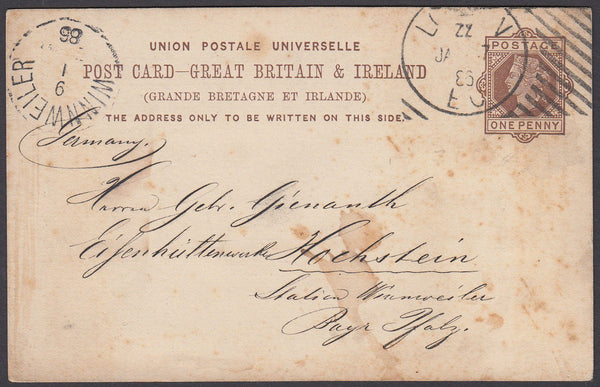 UNION POSTALE UNIVERSELLE
POST CARD—GREAT BRITAIN & IRELAND
(GRANDE BRETAGNE ET IRLANDE)
THE ADDRESS ONLY TO BE WRITTEN ON THIS SIDE.
POSTAGE
ONE PENNY
WINNWEILER
86
1
9
22
JA
86
EC
Germany.
Herren Gebr. Gienanth
Eisenhüttenwerke
Hochstein
Station Winnweiler
Bayr Pfalz.